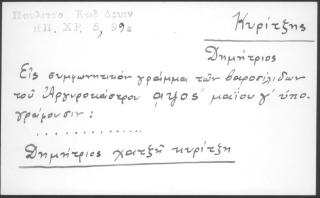 Πουλίτσα Κωδ Δρυιν
ΗΠ. ΧΡ. 5, 99α
Κυρίτζης
Δημήτριος
Εἰς συμφωνητικόν γράμμα τῶν βαροσλίδων
τοῦ Ἀργυροκάστρου αψος΄ μαΐου γ΄ ὑπο-
γράφουσιν:
..............
Δημήτριος χατζῆ κυρίτζη